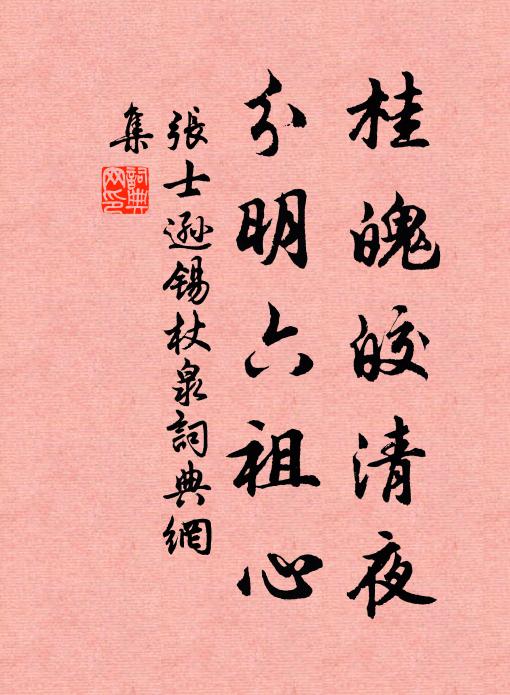 桂魄皎清夜
分明六祖心
張士遜錫杖泉詞典網
集
詞典
网印